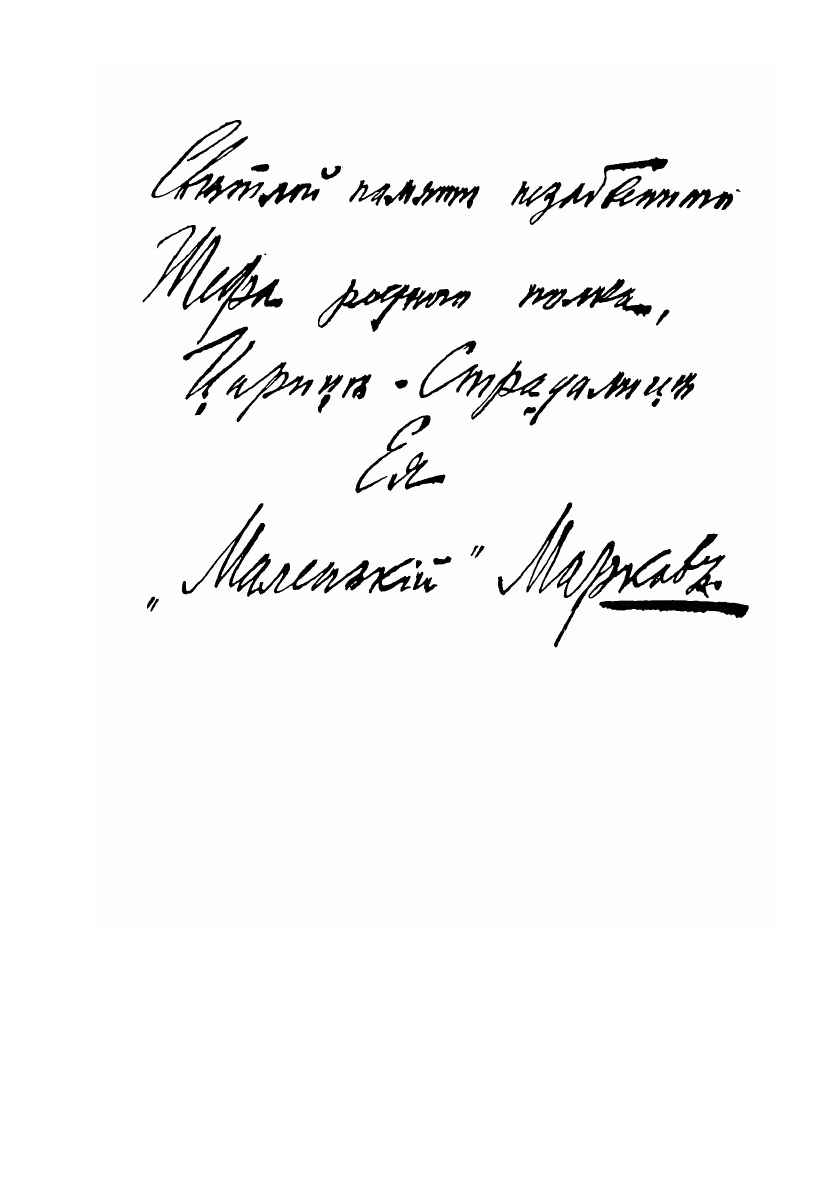 Свѣтлой памяти незабвенного
Шефа родного полка,
Царицѣ-Страдалицѣ
Ея
„Маленькій" Марковъ.